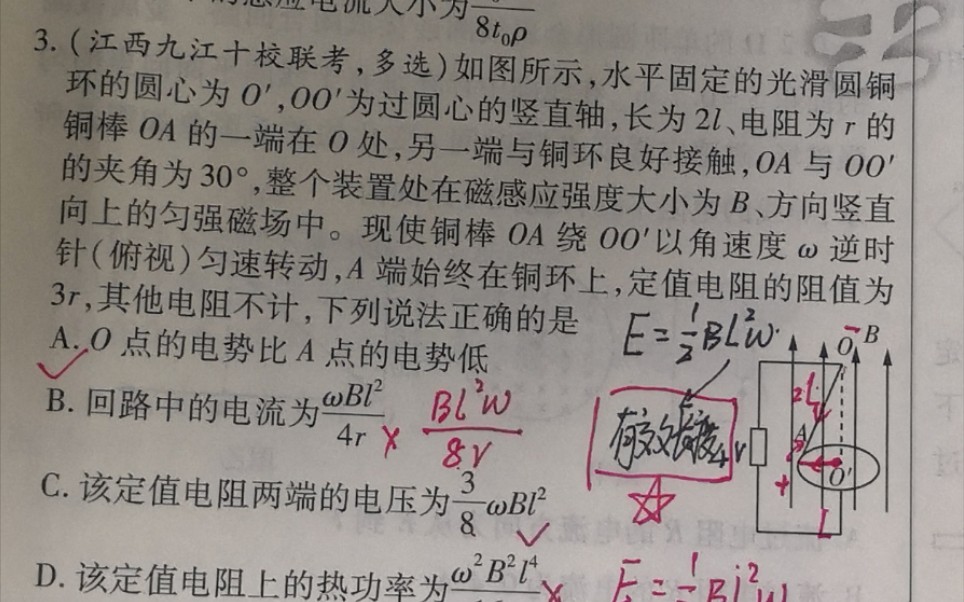 的感应电流大小为
8t₀ρ
3. (江西九江十校联考,多选)如图所示,水平固定的光滑圆铜
环的圆心为 O′,OO′为过圆心的竖直轴,长为 2l、电阻为 r 的
铜棒 OA 的一端在 O 处,另一端与铜环良好接触,OA 与 OO′
的夹角为 30°,整个装置处在磁感应强度大小为 B、方向竖直
向上的匀强磁场中。现使铜棒 OA 绕 OO′以角速度 ω 逆时
针(俯视)匀速转动,A 端始终在铜环上,定值电阻的阻值为
3r,其他电阻不计,下列说法正确的是
E=1/2 BL²ω
A. O 点的电势比 A 点的电势低 ✓
B. 回路中的电流为 ωBl²/4r × Bl²ω/8r
有效长度
C. 该定值电阻两端的电压为 3/8 ωBl² ✓
D. 该定值电阻上的热功率为 ω²B²l⁴ ×
O − B
2l
A
+
O′
L